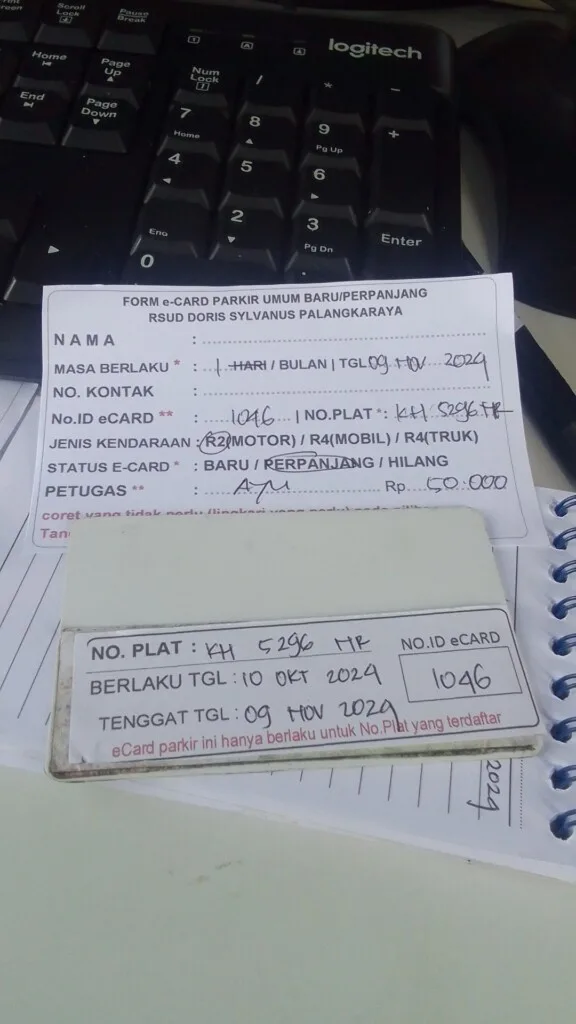 Scroll Lock
Pause Break
logitech
Home
Page Up
Num Lock
/
*
-
End
Page Down
7 Home
8
9 Pg Up
+
4
5
6
2
3 Pg Dn
Enter
0
FORM e-CARD PARKIR UMUM BARU/PERPANJANG
RSUD DORIS SYLVANUS PALANGKARAYA
NAMA :
MASA BERLAKU * : 1 HARI / BULAN | TGL 09 NOV 2024
NO. KONTAK :
No.ID eCARD ** : 1046 | NO.PLAT *: KH 5296 HR
JENIS KENDARAAN : R2(MOTOR) / R4(MOBIL) / R4(TRUK)
STATUS E-CARD * : BARU / PERPANJANG / HILANG
PETUGAS ** : AYU Rp 50.000
NO. PLAT : KH 5296 HR
NO.ID eCARD
BERLAKU TGL : 10 OKT 2024
1046
TENGGAT TGL : 09 NOV 2024
eCard parkir ini hanya berlaku untuk No.Plat yang terdaftar
2024